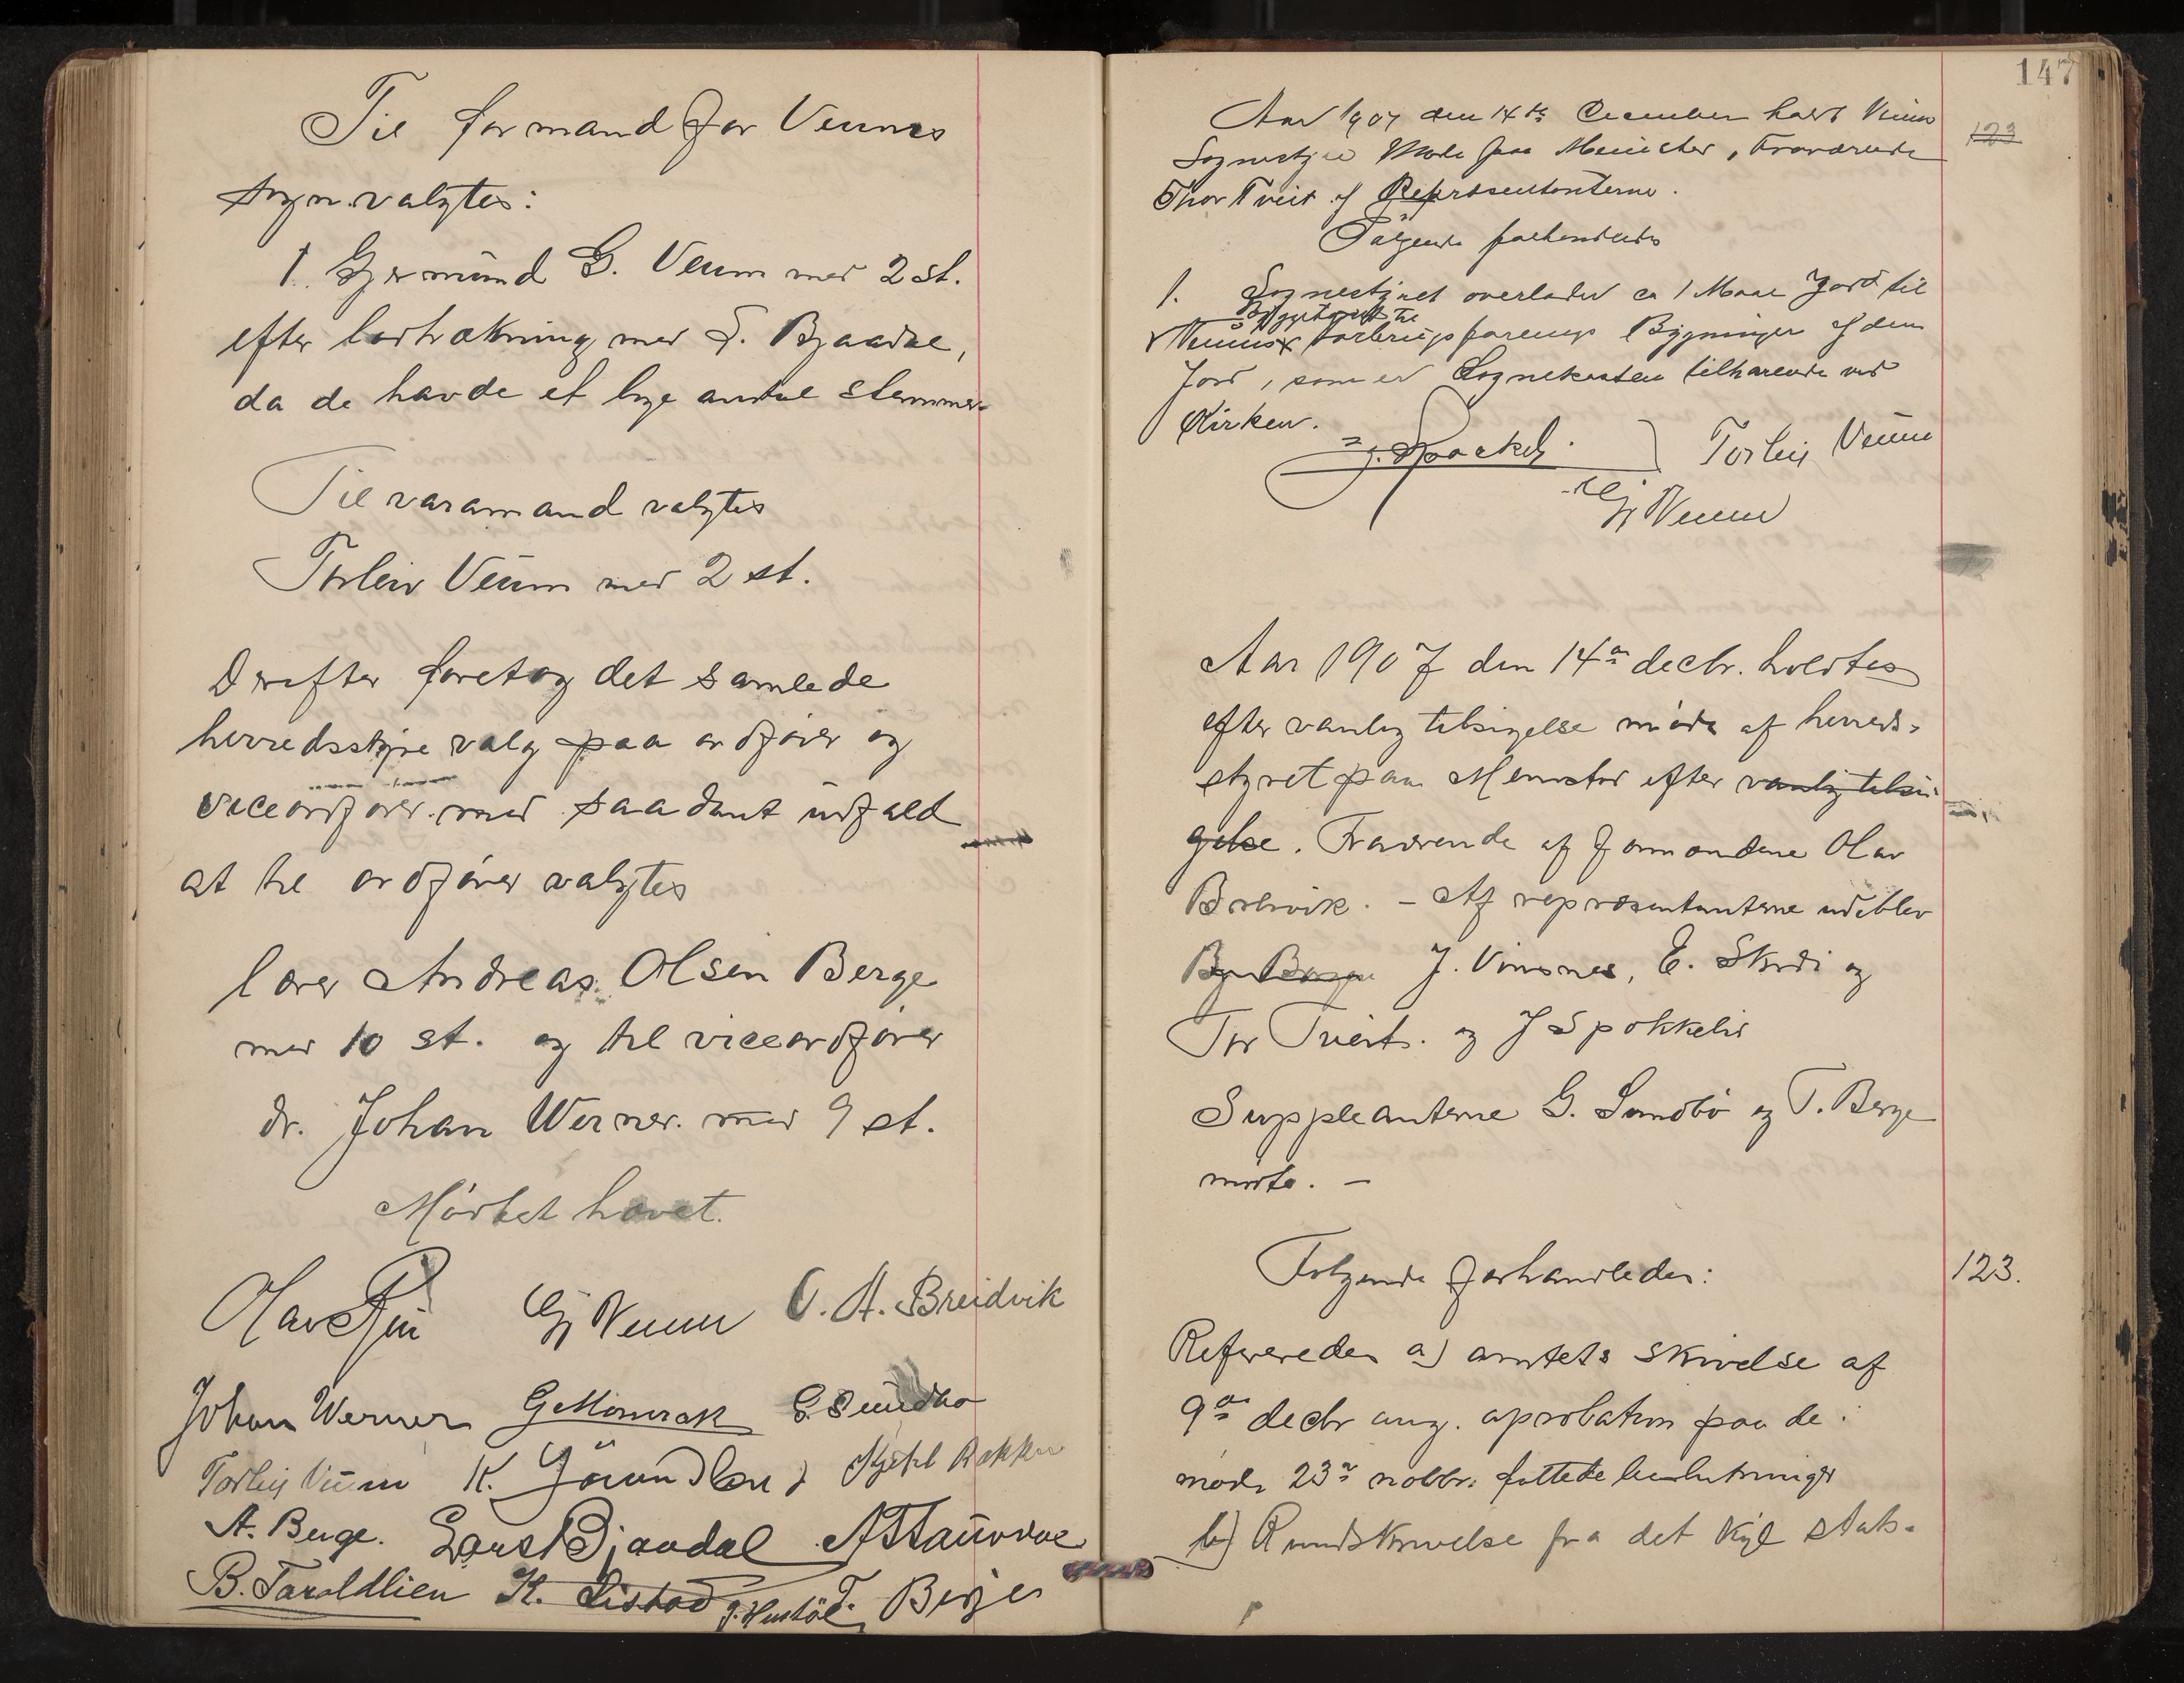 Til formand for Veums
sogn valgtes:
1. Gjermund G. Veum med 2 st.
efter lodtrækning med S. Bjaadal,
da de havde et lige antal stemmer.
Til varamand valgtes
Torleiv Veum med 2 st.
Derefter foretog det samlede
herredsstyre valg paa ordfører og
viceordfører med saadant udfald
at til ordfører valgtes
lærer Andreas Olsen Berge
med 10 st. og til viceordfører
dr. Johan Werner med 9 st.
Mødet hævet.
Olav Gj Veum O. H. Breidvik
Johan Werner G. Sundbø
Torleij Veum K. Kjetil Rakke
A. Berge. A Staurdal
B. Taraldlien K. Listad T. Berge
147
Aar 1907 den 14de December holdt Veum
Sognestyre Møde paa Moenstter, Fraværende
Thor Tveit af Repræsentanterne.
Følgende forhandledes
123
1. Sognestyret overlader ca 1 Maal Jord til
Veums Bygninger af den
Jord, som er Sognekassen tilhørende ved
Kirken.
Torleij Veum
Gj Veum
Aar 1907 den 14de decbr. holdtes
efter vanlig tilsigelse møde af herreds-
styret paa Moenstter efter vanlig tilsi-
gelse. Fraværende af formændene Olav
Breivik. - Af repræsentanterne udeblev
J. Vinsnes, E. Skrdi og
Tor Tveit. og J Spokkeli
Suppleanterne G. Sundbø og T. Berge
mødte. -
Følgende forhandledes:
123.
Refereredes a) amtets skrivelse af
9de decbr ang. aprobation paa de i
møde 23de novbr. fattede beslutninger
b) Rundskrivelse fra det kgl stats-